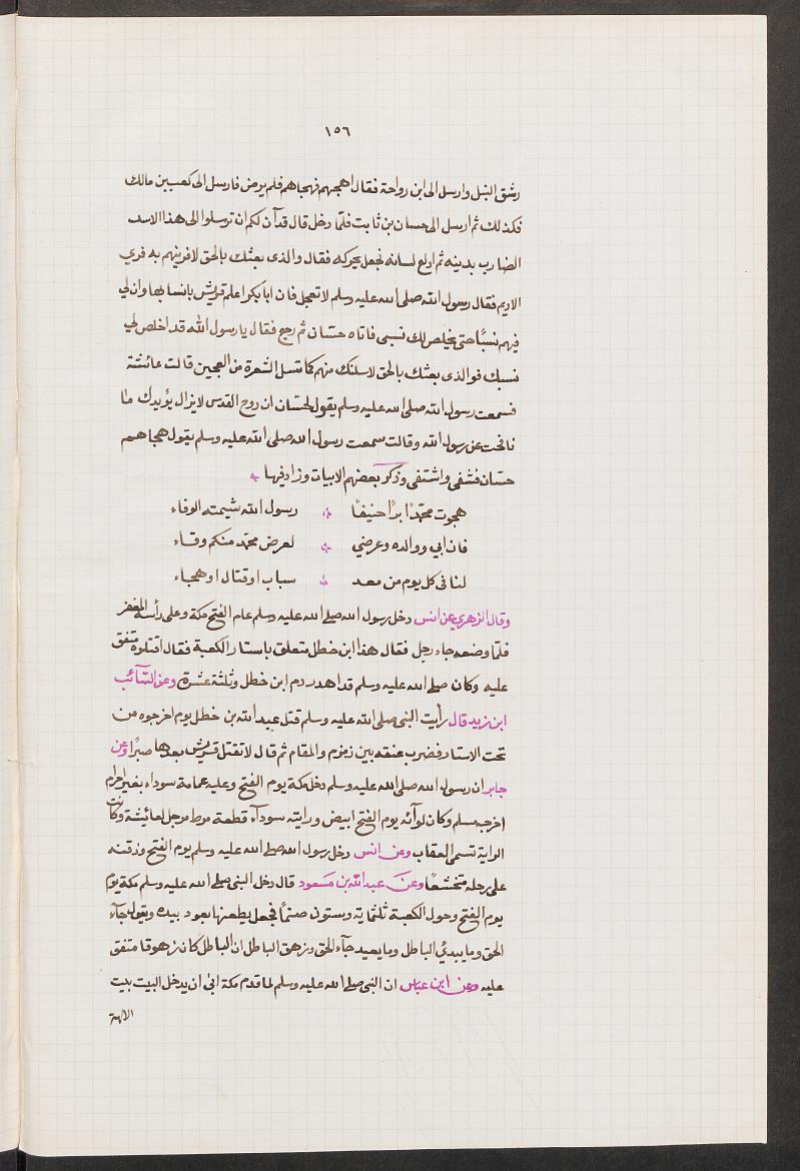 ١٥٦
رشق النبل وارسل الى ابن رواحة فقال اهجهم فهجاهم فلم يرض فارسل الى كعب بن مالك
فكذلك ثم ارسل الى حسان بن ثابت فلمّا دخل قال قد آن لكم ان ترسلوا الى هذا الاسد
الضارب بدينه ثم ادلع لسانه فجعل يحركه فقال والذى بعثك بالحق لافرينهم به فري
الاديم فقال رسول الله صلى الله عليه وسلم لا تعجل فان ابا بكر اعلم قريش بانسابها وان لي
فيهم نسبًا حتى يخلص لك نسبى فاتاه حسّان ثم رجع فقال يا رسول الله قد اخلص لي
نسبك فوالذى بعثك بالحق لاسلنك منهم كما تسل الشعرة من العجين قالت عائشة
فسمعت رسول الله صلى الله عليه وسلم يقول لحسّان ان روح القدس لا يزال يؤيدك ما
نافحت عن رسول الله وقالت سمعت رسول الله صلى الله عليه وسلم يقول هجاهم
حسّان فشفى واشتفى وذكر بعضهم الابيات وزاد فيها
هجوت محمّدًا برًا حنيفًا رسول الله شيمته الوفاء
فان ابي ووالده وعرضي لعرض محمّد منكم وقاء
لنا فى كل يوم من معد سباب او قتال او هجاء
وقال الزهري عن انس دخل رسول الله صلى الله عليه وسلم عام الفتح مكة وعلى رأسه المغفر
فلمّا وضعه جاء رجل فقال هذا ابن خطل متعلق باستار الكعبة فقال اقتلوه متفق
عليه وكان صلى الله عليه وسلم قد اهدر دم ابن خطل وثلثة عشرة وعن السّآئب
ابن زيد قال رأيت النبى صلى الله عليه وسلم قتل عبد الله بن خطل يوم اخرجوه من
تحت الاستار فضرب عنقه بين زمزم والمقام ثم قال لا تقتل قريش بعدها صبرًا وعن
جابر ان رسول الله صلى الله عليه وسلم دخل مكة يوم الفتح وعليه عمامة سوداء بغير احرام
اخرجه مسلم وكان لوآئه يوم الفتح ابيض ورايته سودآء قطعة مرط مرجل لعائيشة وكانت
الراية تسمى العقاب وعن انس دخل رسول الله صلى الله عليه وسلم يوم الفتح وذقنه
على رحله متخشعًا وعن عبد الله بن مسعود قال دخل النبى صلى الله عليه وسلم مكة يوم
يوم الفتح وحول الكعبة ثلثماية وستون صنمًا فجعل يطعنها بعود بيده ويقول جآء
الحق وما يبدئ الباطل وما يعيد جآء الحق وزهق الباطل ان الباطل كان زهوقا متفق
عليه وعن ابن عباس ان النبى صلى الله عليه وسلم لما قدم مكة ابى ان يدخل البيت بيت
الالهة